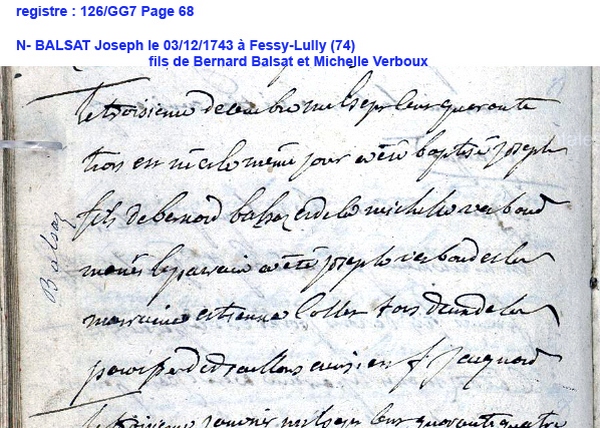 registre : 126/GG7 Page 68
N- BALSAT Joseph le 03/12/1743 à Fessy-Lully (74)
fils de Bernard Balsat et Michelle Verboux
le troisieme decembre mil sept cent quarante
trois est né et le meme jour a été baptisé joseph
fils de bernard balsaz et de la michelle verboud
mariés le parrain a été joseph verboud et la
marraine estienne tous deux de la
f jacquard
Balsaz
le troisieme janvier mil sept cent quarante quatre